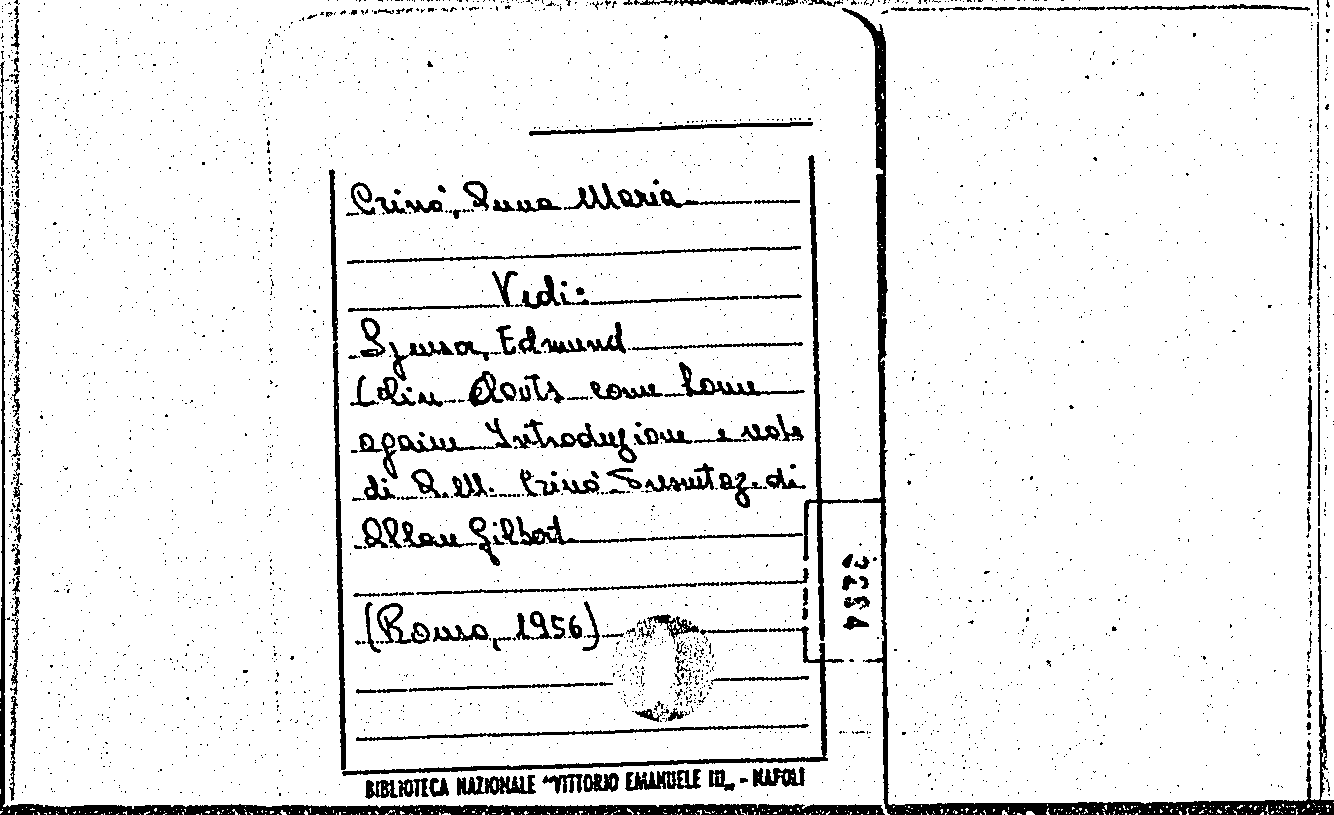 Crinò, Anna Maria
Vedi:
Spenser, Edmund
Colin Clouts come home
againe Introduzione e note
di A.M. Crinò Presentaz. di
Allan Gilbert
(Roma, 1956)
BIBLIOTECA NAZIONALE "VITTORIO EMANUELE III„ - NAPOLI